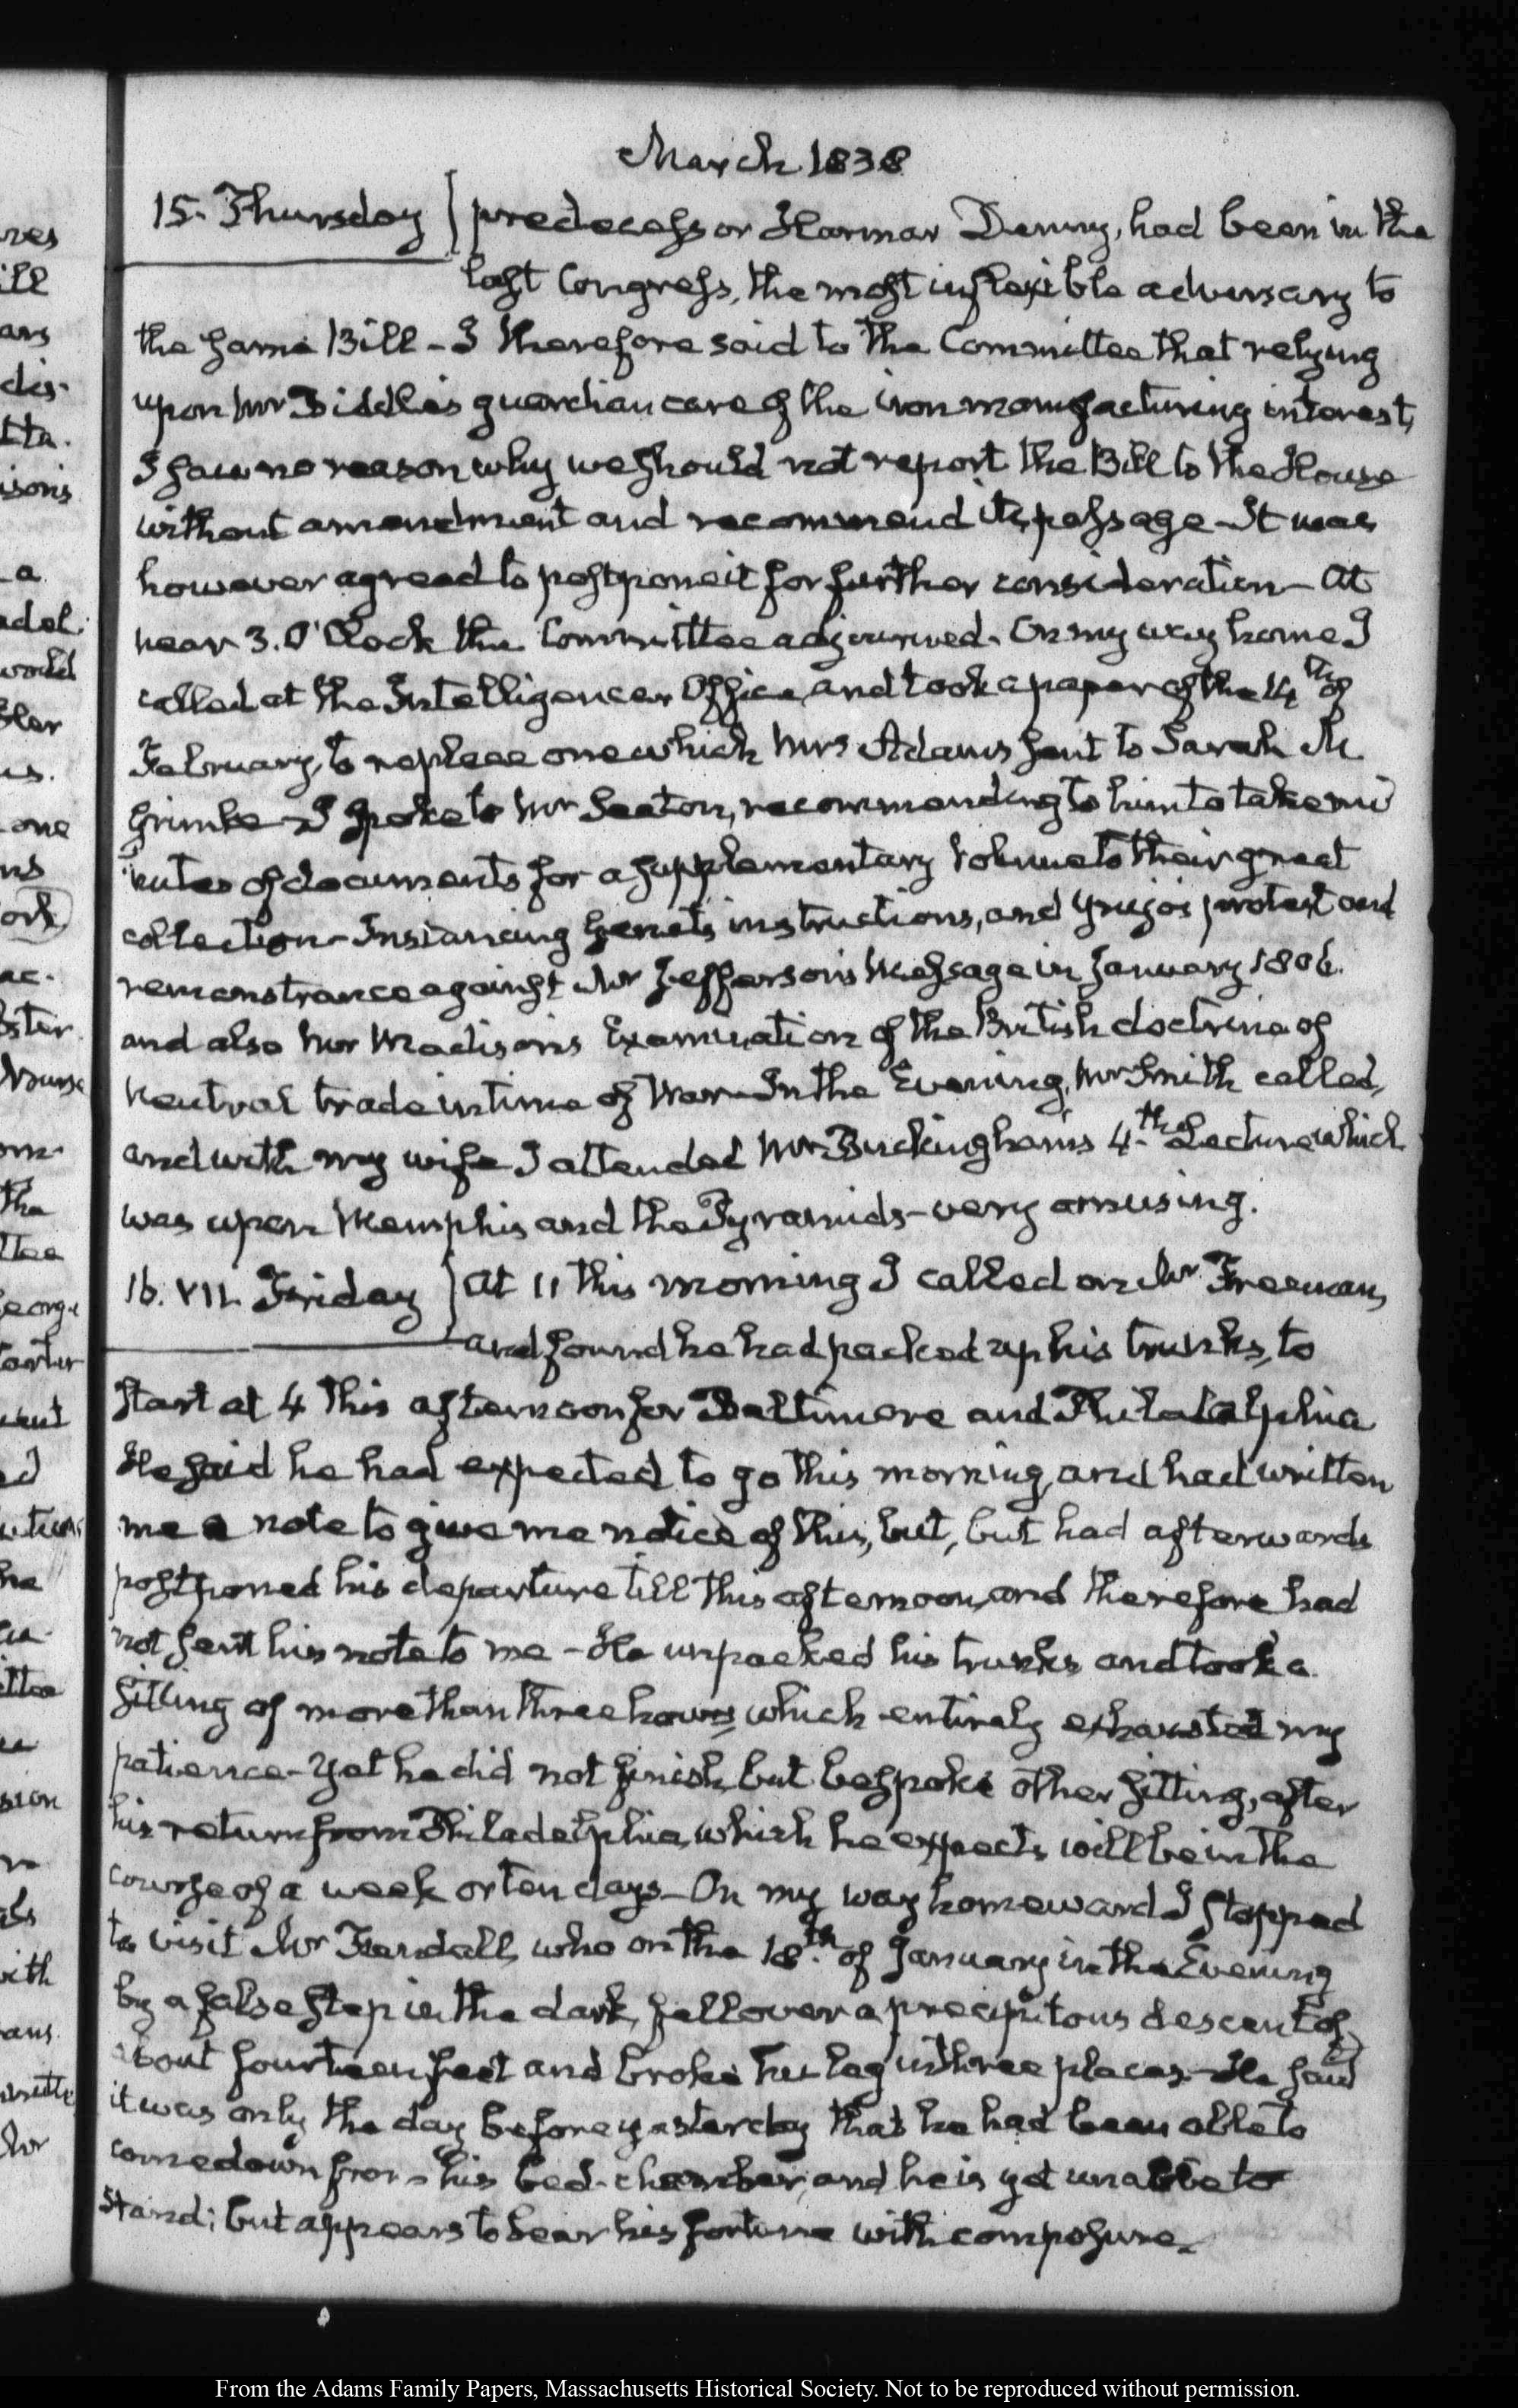 March 1838
15. Thursday predecessor Harmar Denny, had been in the
last Congress, the most inflexible adversary to
the same Bill - I therefore said to the Committee that relying
upon Mr Biddle's guardian care of the iron manufacturing interest,
I saw no reason why we should not report the Bill to the House
without amendment and recommend its passage - It was
however agreed to postpone it for further consideration - At
near 3. O'Clock the Committee adjourned. On my way home I
called at the Intelligencer Office, and took a paper of the 14th of
February, to replace one which Mrs Adams sent to Sarah M
Grimke - I spoke to Mr Seaton, recommending to him to take mi
nutes of documents for a supplementary volume to their great
collection - Instancing Genet's instructions, and Yrujo's protest and
remonstrance against Mr Jefferson's Message in January 1806.
and also Mr Madison's Examination of the British doctrine of
Neutral trade in time of War - In the Evening, Mr Smith called,
and with my wife I attended Mr Buckingham's 4th Lecture which
was upon Memphis and the Pyramids - very amusing.
16. VII. Friday At 11 this morning I called on Mr Freeman,
and found he had packed up his trunks, to
start at 4 this afternoon for Baltimore and Philadelphia
He said he had expected to go this morning, and had written
me a note to give me notice of this, but, but had afterwards
postponed his departure till this afternoon, and therefore had
not sent his note to me - He unpacked his trunks and took a
sitting of more than three hours which entirely exhausted my
patience - Yet he did not finish, but bespoke other sitting, after
his return from Philadelphia, which he expects will be in the
course of a week or ten days - On my way homeward I stopped
to visit Mr Kendall, who on the 18th of January in the Evening
by a false step in the dark, fell over a precipitous descent of
about fourteen feet and broke his leg in three places - He said
it was only the day before yesterday that he had been able to
come down from his bed-chamber, and he is yet unable to
stand; but appears to bear his fortune with composure.
From the Adams Family Papers, Massachusetts Historical Society. Not to be reproduced without permission.